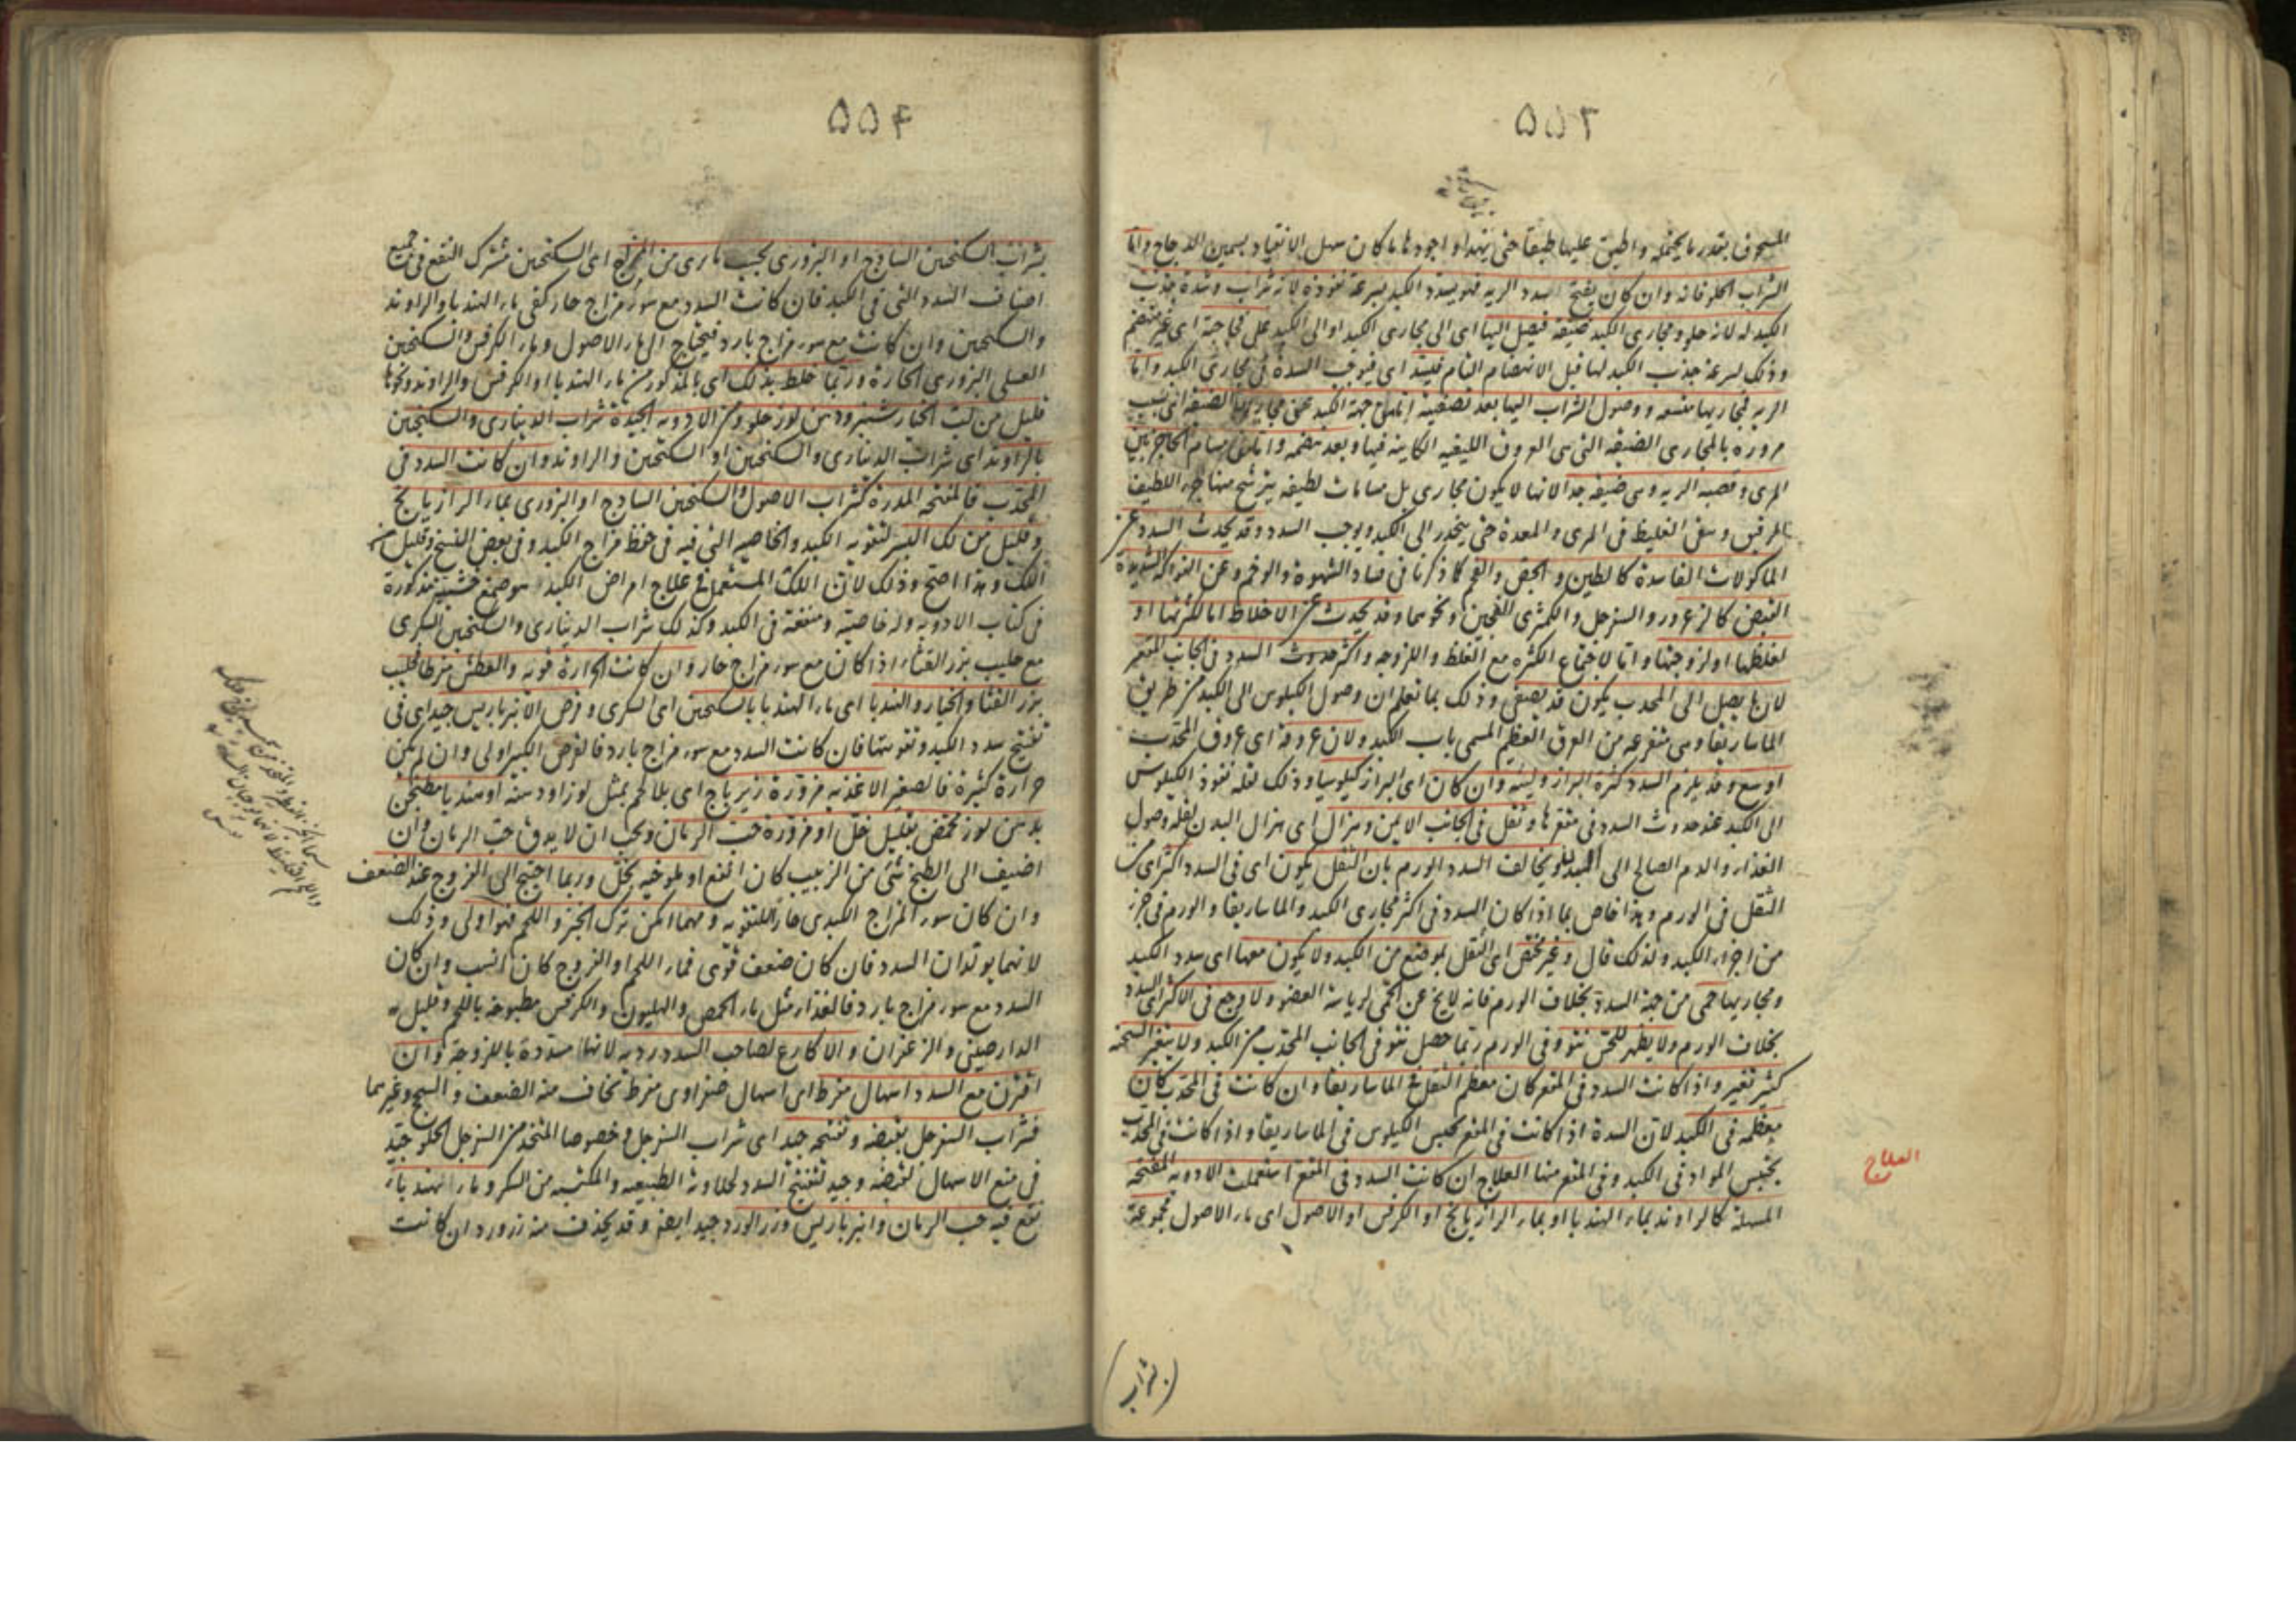 ٥٥٣
المسحوق بقدر ما يحتمله واطبق عليها طبقا حتى يتهدا واجودها ما كان سهل الانقياد بسمين الدجاج واما
الشراب الحلو فانه وان كان يفتح سدد الريه فهو يسدد الكبد بسرعة نفوذه لانه شراب وشدة جذب
الكبد له لانه حلو ومجارى الكبد ضيقة فيصل اليها اى الى مجارى الكبد او الى الكبد على فجاجته اى غير منهضم
وذلك لسرعة جذب الكبد لها قبل الانهضام التام فيسد اى فيوجب السدة فى مجارى الكبد واما
الريه فمجاريها متسعه ووصول الشراب اليها بعد تصفيته اما من جهة الكبد عن مجاريها الضيقه اى بسبب
مروره بالمجارى الضيقه التى هى العروق الليفيه الكاينه فيها وبعد هضمه واما من مسام الحاجز بين
المرى وقصبه الريه وهى ضيقه جدا لانها لا يكون مجارى بل مسامات لطيفه يترشح منها جزء اللطيف
الرقيق وبقى الغليظ فى المرى والمعدة حتى ينحدر الى الكبد ويوجب السدد وقد يحدث السدد عن
الماكولات الفاسدة كالطين والجص والفحم كما ذكرنا فى فساد الشهوة والوخم وعن الفواكه الشديدة
القبض كالزعرور والسفرجل والكمثرى الفجين ونحوهما وقد يحدث عن الاخلاط اما لكثرتها او
لغلظها او لزوجتها واما لاجتماع الكثره مع الغلظ واللزوجه واكثر حدوث السدد فى الجانب المقعر
لان ما يصل الى المحدب يكون قد تصفى وذلك بما تعلم ان وصول الكيلوس الى الكبد من طريق
الماساريقا وهى متفرعه من العرق العظيم المسمى باب الكبد ولان عروقه اى عروق المحدب
اوسع وقد يلزم السدد كثرة البراز ولينه وان كان اى البراز كيلوسيا وذلك لقله نفوذ الكيلوس
الى الكبد عند حدوث السدد فى مقعرها وثقل فى الجانب الايمن وهزال اى هزال البدن لقله وصول
الغذاء والدم الصالح الى البدن ويخالف السدد الورم بان الثقل يكون اى فى السدد اكثر اى من
الثقل فى الورم وهذا خاص بما اذا كان السدد فى اكثر مجارى الكبد والماساريقا والورم فى جزء
من اجزاء الكبد ولذلك قال وغير مختص اى الثقل بموضع من الكبد ولا يكون معها اى سدد الكبد
ومجاريها حمى من جهة السدة بخلاف الورم فانه لا يخ عن الحمى لرياسة العضو ولا وجع فى الاكثر اى السدد
بخلاف الورم ولا يظهر للحس نتو وفى الورم ربما حصل نتو فى الجانب المحدب من الكبد ولا يتغير السحنه
كثير تغير واذا كانت السدد فى المقعر كان معظم الثقل فى الماساريقا وان كانت فى المحدب كان
معظمه فى الكبد لان السدة اذا كانت فى المقعر يحتبس الكيلوس فى الماساريقا واذا كانت فى المحدب
يحتبس المواد فى الكبد وفى المقعر منها العلاج ان كانت السدد فى المقعر استعملت الادويه المفتحه
المسهلة كالراوند بماء الهندبا او بماء الرازيانج او الكرفس او الاصول اى ماء الاصول مجموعة
العلاج
بشراب
٥٥۴
بشراب السكنجبين الساذج او البزورى بحسب ما يرى من المزاج اى السكنجبين مشترك النفع فى جميع
اصناف السدد التى فى الكبد فان كانت السدد مع سوء مزاج حار كفى ماء الهندبا والراوند
والسكنجبين وان كانت مع سوء مزاج بارد فيحتاج الى ماء الاصول وماء الكرفس والسكنجبين
العسلى البزورى الحارة وربما خلط بذلك اى بالمذكور من ماء الهندبا او الكرفس والراوند ونحوها
قليل من لب الخيارشنبر ودهن لوز حلو ومن الادويه الجيدة شراب الدينارى والسكنجبين
بالراوند اى شراب الدينارى والسكنجبين او السكنجبين والراوند وان كانت السدد فى
المحدب فالمفتحه المدرة كشراب الاصول والسكنجبين الساذج او البزورى بماء الرازيانج
وقليل من لك البسر لتقويه الكبد والخاصيه التى فيه فى حفظ مزاج الكبد وفى بعض النسخ وقليل من
اللك وهذا اصح وذلك لان اللك المستعمل فى علاج امراض الكبد هو صمغ خشبته مذكورة
فى كتاب الادويه وله خاصية ومنفعة فى الكبد وكذلك شراب الدينارى والسكنجبين السكرى
مع حليب بزر القثاء اذا كان مع سوء مزاج حار وان كانت الحرارة قويه والعطش مفرطا فحليب
بزر القثا والخيار والهندبا اى ماء الهندبا بالسكنجبين اى السكرى وقرص الانبرباريس جيد اى فى
تفتيح سدد الكبد وتقويتها فان كانت السدد مع سوء مزاج بارد فالقرص الكبير اولى وان لم يكن
حرارة كثيرة فالصغير الاغذيه مزورة زيرباج اى بلا لحم بمثل لوز او دسته او هندبا مطبخن
بدهن لوز محمض بقليل خل او مزورة حب الرمان ويجب ان لا يدق حب الرمان وان
اضيف الى الطبخ شئ من الزبيب كان انفع او ملوخيه بخل وربما احتيج الى الفروج عند الضعف
وان كان سوء المزاج الكبدى حارا للتقويه ومهما امكن ترك الخبز واللحم فهو اولى وذلك
لانهما يولدان السدد فان كان ضعف قوى فماء اللحم او الفروج كان انسب وان كان
السدد مع سوء مزاج بارد فالغذاء مثل ماء الحمص والهليون والكرفس مطبوخة باللحم وقليل من
الدارصينى والزعفران والاكارع لصاحب السدد رديه لانها مسددة باللزوجة وان
اقترن مع السدد اسهال مفرط اى اسهال صفراوى مفرط يخاف منه الضعف والسحج وغيرهما
فشراب السفرجل بقبضه وتفتيحه جيد اى شراب السفرجل وخصوصا المتخذ من السفرجل الحلو جيد
فى منع الاسهال لقبضه وجيد لتفتيح السدد لحلاوته الطبيعيه والمكتسبه من السكر وماء الهندباء
نقع فيه حب الرمان وانبرباريس وزر الورد جيد ايضا وقد يحذف منه زر ورد ان كانت